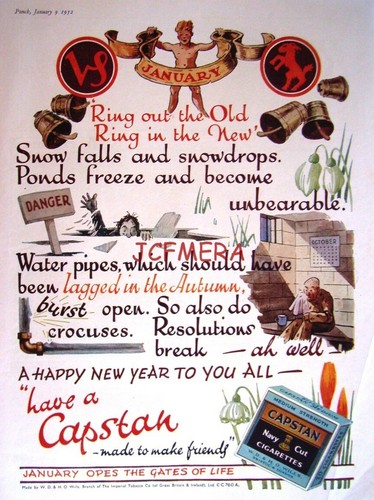 Punch, January 9 1952
JANUARY
'Ring out the Old
Ring in the New'
Snow falls and snowdrops.
Ponds freeze and become
unbearable.
DANGER
JCFMERA
OCTOBER
Water pipes, which should have
been lagged in the Autumn,
burst open. So also do
crocuses. Resolutions
break — ah well —
A HAPPY NEW YEAR TO YOU ALL —
"have a
Capstan
-made to make friends"
MEDIUM STRENGTH
CAPSTAN
Navy Cut
CIGARETTES
W.D. & H.O. WILLS
JANUARY OPES THE GATES OF LIFE
Made by W. D. & H. O. Wills, Branch of The Imperial Tobacco Co (of Great Britain & Ireland), Ltd. CC 760A.